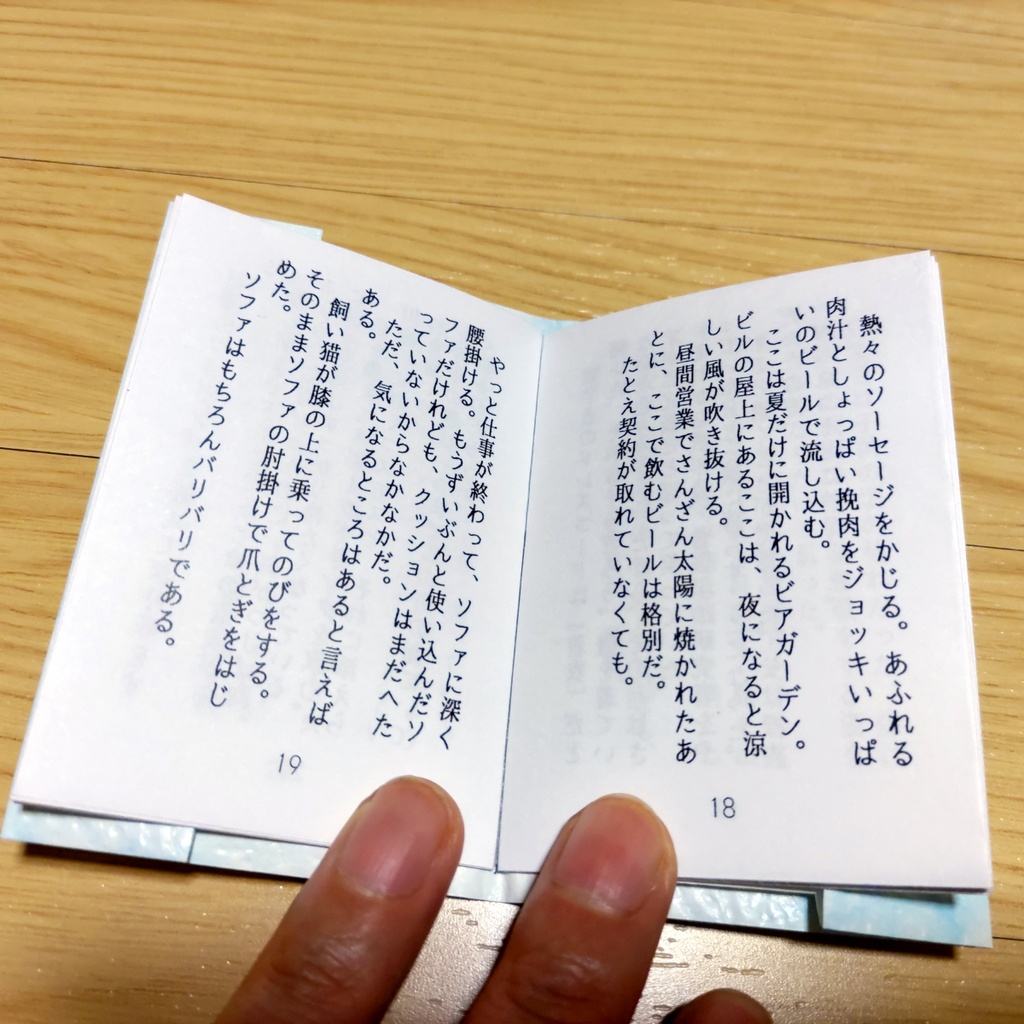 熱々のソーセージをかじる。あふれる
肉汁としょっぱい挽肉をジョッキいっぱ
いのビールで流し込む。
ここは夏だけに開かれるビアガーデン。
ビルの屋上にあるここは、夜になると涼
しい風が吹き抜ける。
昼間営業でさんざん太陽に焼かれたあ
とに、ここで飲むビールは格別だ。
たとえ契約が取れていなくても。
18
やっと仕事が終わって、ソファに深く
腰掛ける。もうずいぶんと使い込んだソ
ファだけれども、クッションはまだへた
っていないからなかなかだ。
ただ、気になるところはあると言えば
ある。
飼い猫が膝の上に乗ってのびをする。
そのままソファの肘掛けで爪とぎをはじ
めた。
ソファはもちろんバリバリである。
19